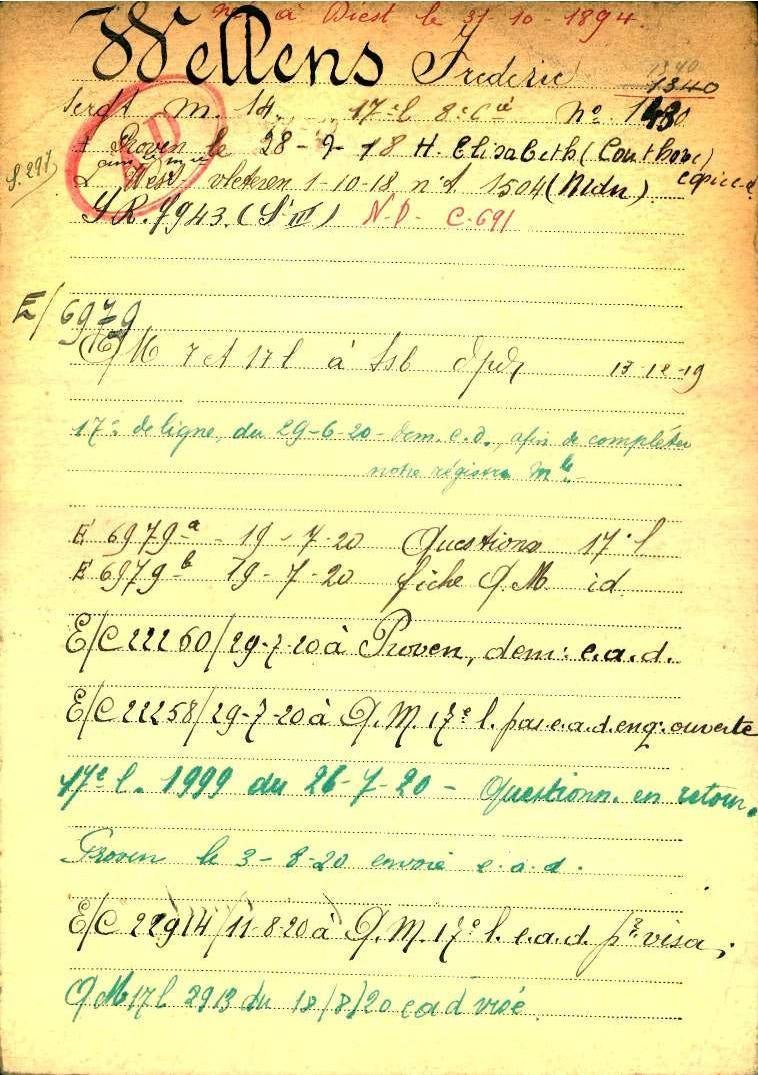 né à Diest le 31-10-1894.
Wellens Frederic
1340
1340
Sergt m. 14. 17e l 8e Cie no. 1480
+ Proven le 28-9-18 H. Elisabeth (Couthove)
L West-vleteren 1-10-18 n°t 1504 (Mdn)
S. 297
S.R. f 943. (S'III) N.D. C.691
E/6979
Q M 7 et 17 l à 13-12-19
17e de ligne, du 29-6-20 - dem. e.d., afin de compléter
notre régistre mle
E 6979 a - 19-7-20 Questionn 17e l
E 6979 b 19-7-20 fiche Q.M. id
E/C 22260/29-7-20 à Proven, dem: e.a.d.
E/C 22258/29-7-20 à Q.M. 17e l. pas e.a.d. enq: ouverte
17e l. 1999 du 26-7-20 - Questionn. en retour.
Proven le 3-8-20 envoie e.a.d.
E/C 22914/11-8-20 à Q.M. 17e l. e.a.d. pr visa.
QM 17 l 2913 du 18/8/20 ead visé